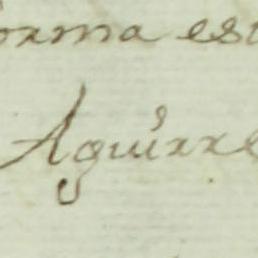 orma est
Aguirre